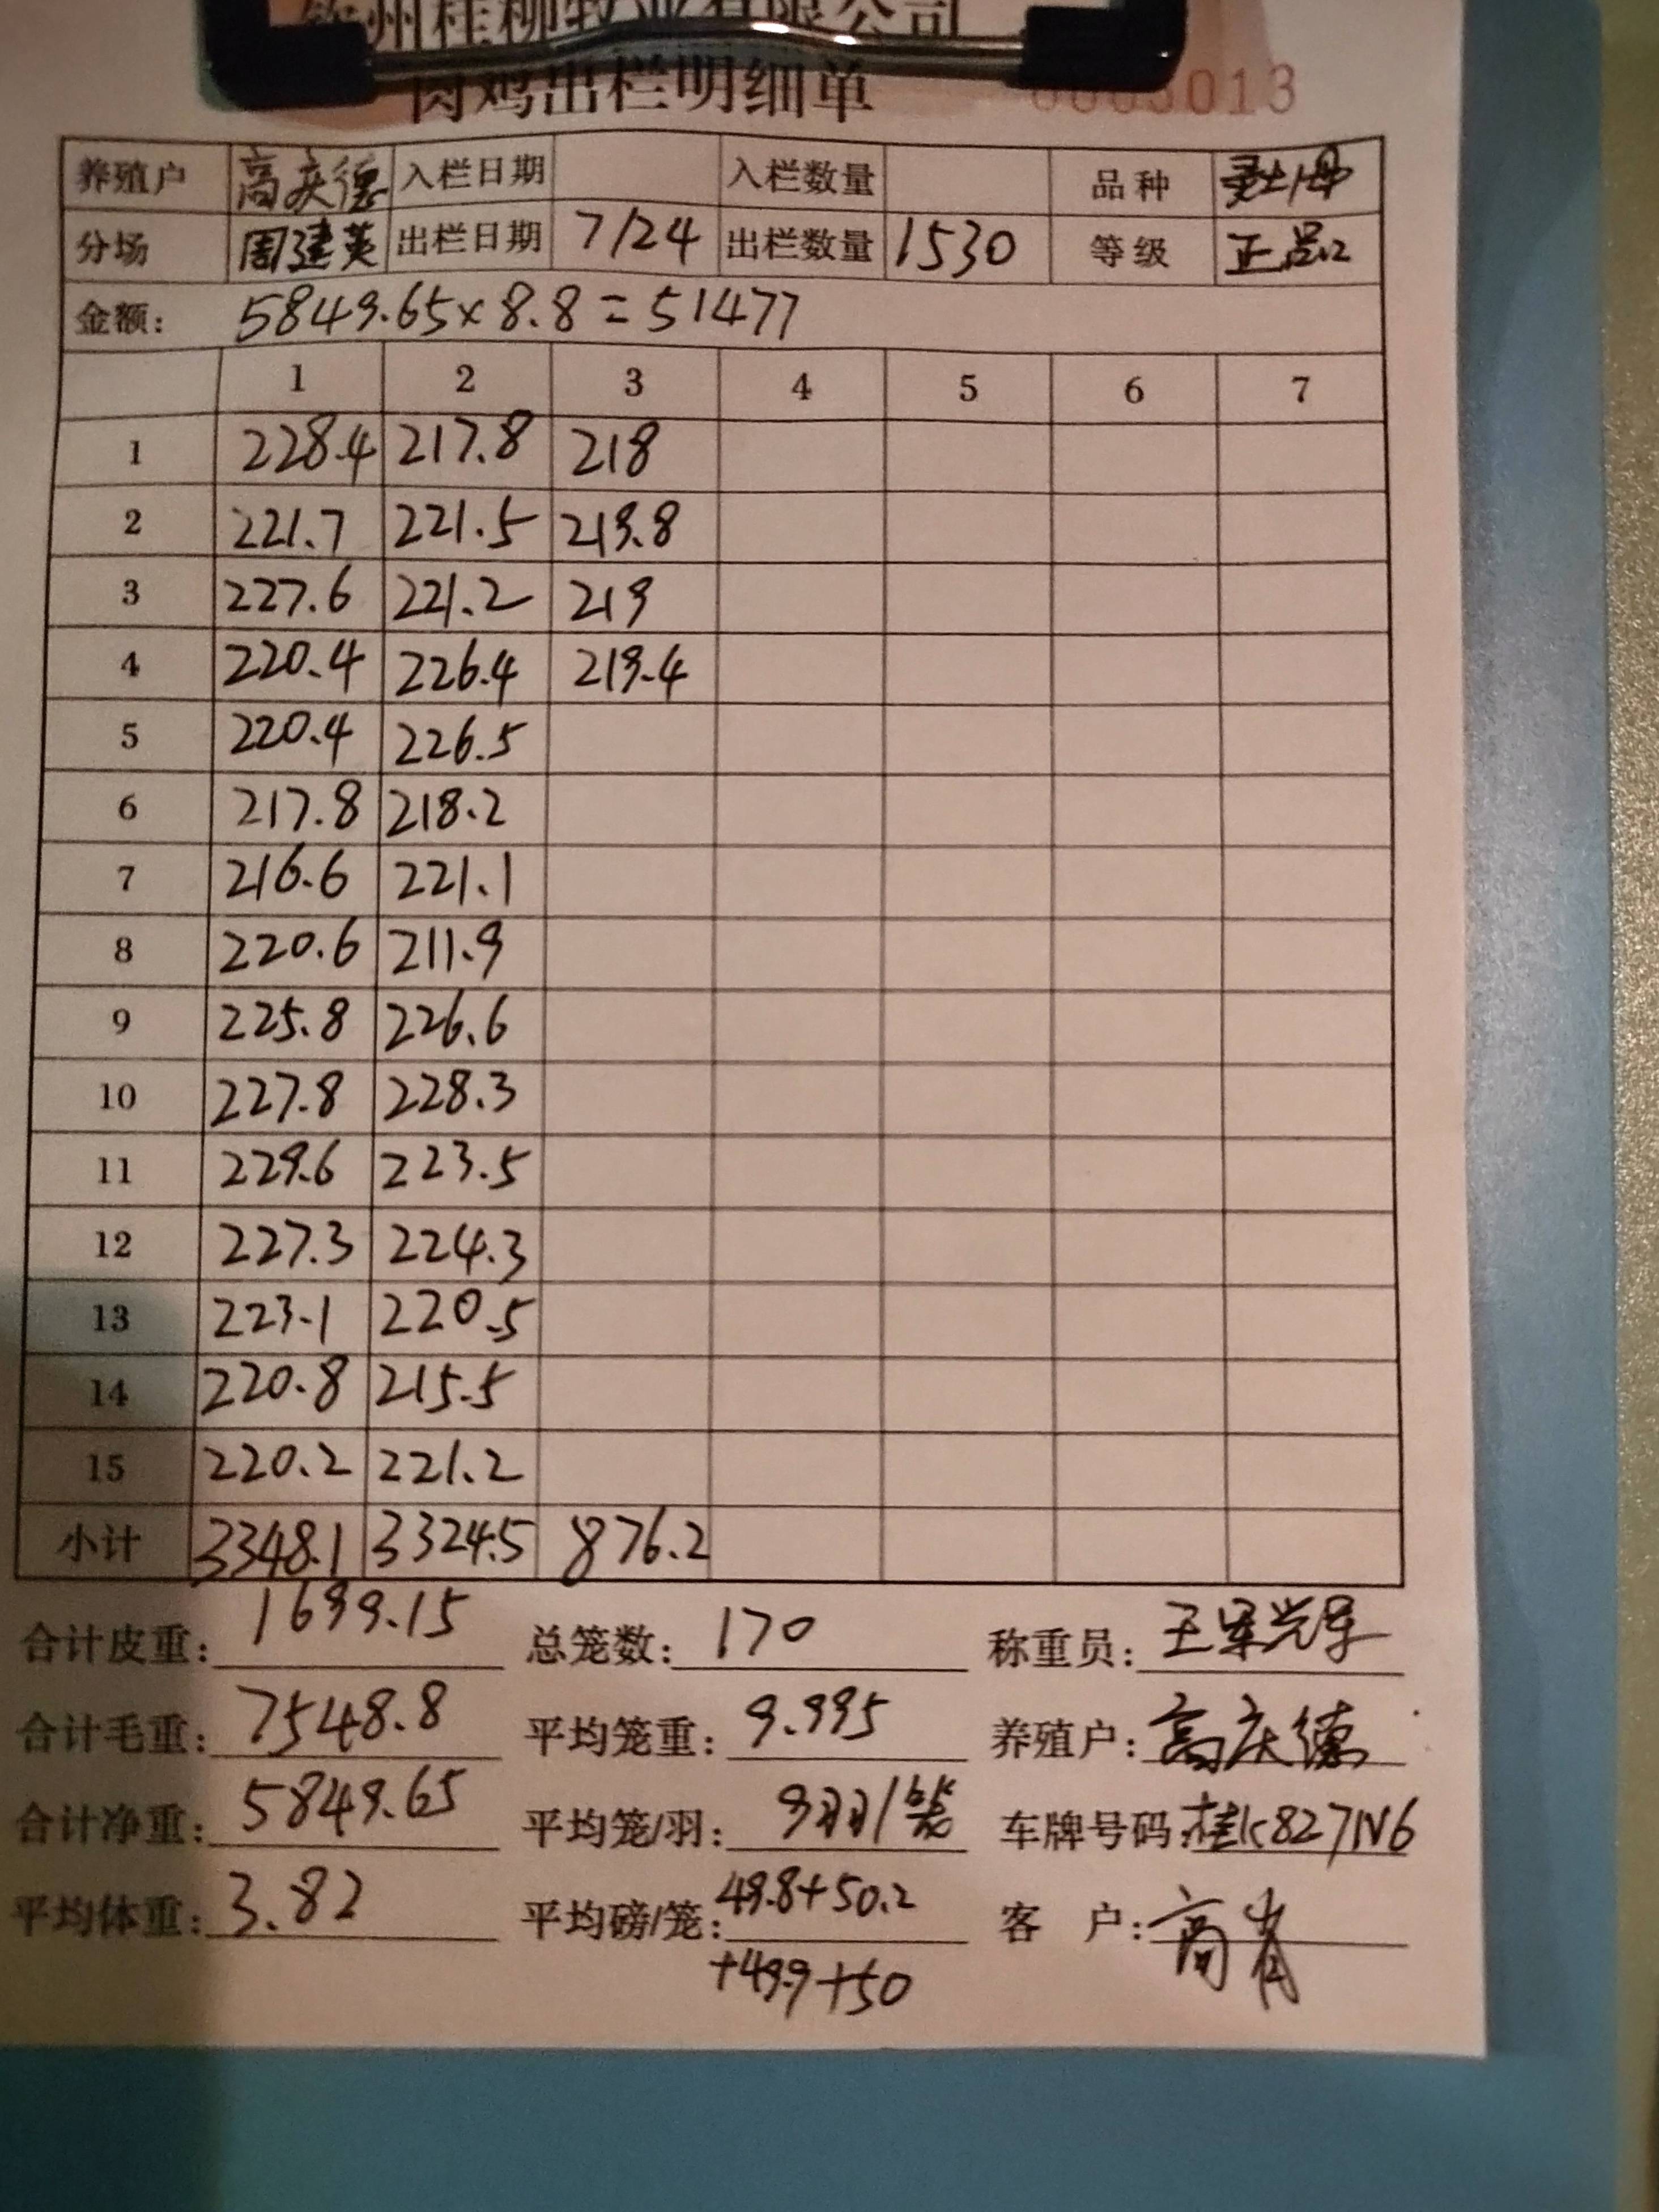 州桂柳牧业有限公司
肉鸡出栏明细单 0003013
养殖户 高庆德 入栏日期 入栏数量 品种
分场 周建英 出栏日期 7/24 出栏数量 1530 等级 正品
金额: 5849.65×8.8=51477
1 2 3 4 5 6 7
1 228.4 217.8 218
2 221.7 221.5 219.8
3 227.6 221.2 219
4 220.4 226.4 219.4
5 220.4 226.5
6 217.8 218.2
7 216.6 221.1
8 220.6 211.9
9 225.8 226.6
10 227.8 228.3
11 229.6 223.5
12 227.3 224.3
13 223.1 220.5
14 220.8 215.5
15 220.2 221.2
小计 3348.1 3324.5 876.2
合计皮重: 1699.15 总笼数: 170 称重员:
合计毛重: 7548.8 平均笼重: 9.995 养殖户: 高庆德
合计净重: 5849.65 平均笼/羽: 9羽/笼 车牌号码: 桂K827N6
平均体重: 3.82 平均磅/笼: 49.8+50.2 客 户:
+49.9+50